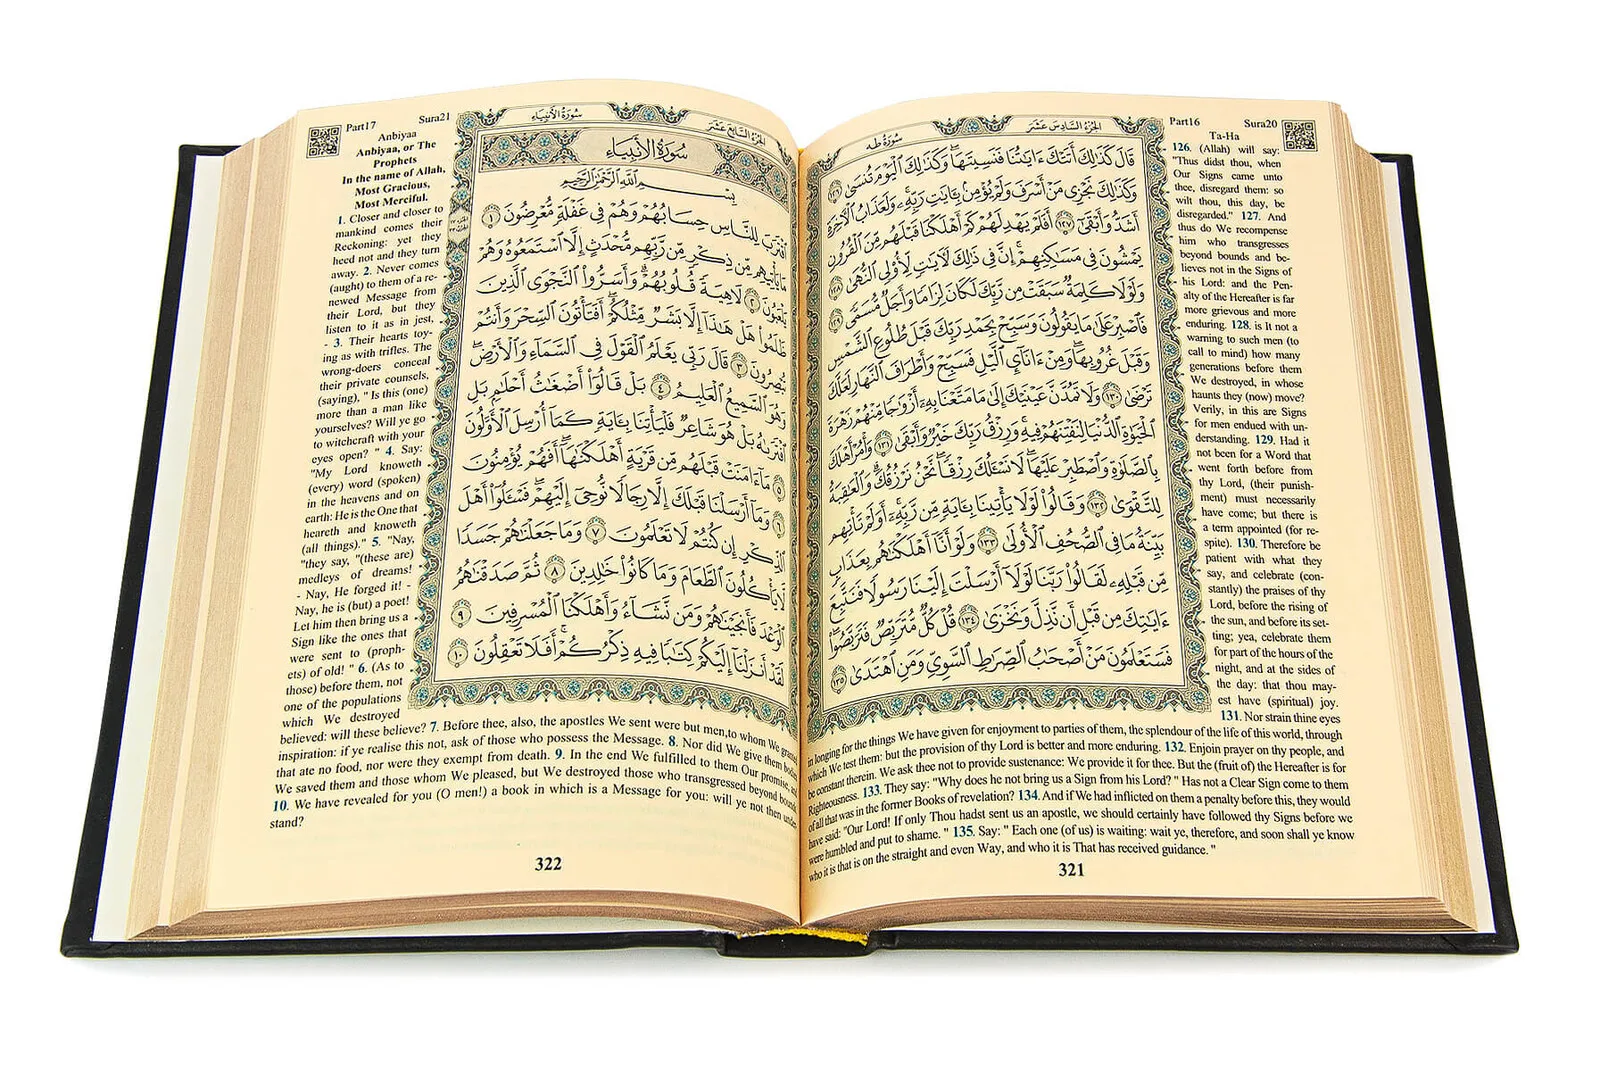 Part16 Sura20
Ta-Ha
126. (Allah) will say:
"Thus didst thou, when
Our Signs came unto
thee, disregard them: so
wilt thou, this day, be
disregarded." 127. And
thus do We recompense
him who transgresses
beyond bounds and be-
lieves not in the Signs of
his Lord: and the Pen-
alty of the Hereafter is far
more grievous and more
enduring. 128. is It not a
warning to such men (to
call to mind) how many
generations before them
We destroyed, in whose
haunts they (now) move?
Verily, in this are Signs
for men endued with un-
derstanding. 129. Had it
not been for a Word that
went forth before from
thy Lord, (their punish-
ment) must necessarily
have come; but there is
a term appointed (for re-
spite). 130. Therefore be
patient with what they
say, and celebrate (con-
stantly) the praises of thy
Lord, before the rising of
the sun, and before its set-
ting; yea, celebrate them
for part of the hours of the
night, and at the sides of
the day: that thou may-
est have (spiritual) joy.
131. Nor strain thine eyes
in longing for the things We have given for enjoyment to parties of them, the splendour of the life of this world, through
which We test them: but the provision of thy Lord is better and more enduring. 132. Enjoin prayer on thy people, and
be constant therein. We ask thee not to provide sustenance: We provide it for thee. But the (fruit of) the Hereafter is for
Righteousness. 133. They say: "Why does he not bring us a Sign from his Lord?" Has not a Clear Sign come to them
of all that was in the former Books of revelation? 134. And if We had inflicted on them a penalty before this, they would
have said: "Our Lord! If only Thou hadst sent us an apostle, we should certainly have followed thy Signs before we
were humbled and put to shame. " 135. Say: " Each one (of us) is waiting: wait ye, therefore, and soon shall ye know
who it is that is on the straight and even Way, and who it is That has received guidance. "
321
الجزء السادس عشر سورة طه
قَالَ كَذَٰلِكَ أَتَتْكَ ءَايَٰتُنَا فَنَسِيتَهَا ۖ وَكَذَٰلِكَ ٱلْيَوْمَ تُنسَىٰ ١٢٦
وَكَذَٰلِكَ نَجْزِى مَنْ أَسْرَفَ وَلَمْ يُؤْمِنۢ بِـَٔايَٰتِ رَبِّهِۦ ۚ وَلَعَذَابُ ٱلْءَاخِرَةِ
أَشَدُّ وَأَبْقَىٰٓ ١٢٧ أَفَلَمْ يَهْدِ لَهُمْ كَمْ أَهْلَكْنَا قَبْلَهُم مِّنَ ٱلْقُرُونِ
يَمْشُونَ فِى مَسَٰكِنِهِمْ ۗ إِنَّ فِى ذَٰلِكَ لَءَايَٰتٍ لِّأُو۟لِى ٱلنُّهَىٰ ١٢٨
وَلَوْلَا كَلِمَةٌ سَبَقَتْ مِن رَّبِّكَ لَكَانَ لِزَامًا وَأَجَلٌ مُّسَمًّى ١٢٩
فَٱصْبِرْ عَلَىٰ مَا يَقُولُونَ وَسَبِّحْ بِحَمْدِ رَبِّكَ قَبْلَ طُلُوعِ ٱلشَّمْسِ
وَقَبْلَ غُرُوبِهَا ۖ وَمِنْ ءَانَآئِ ٱلَّيْلِ فَسَبِّحْ وَأَطْرَافَ ٱلنَّهَارِ لَعَلَّكَ
تَرْضَىٰ ١٣٠ وَلَا تَمُدَّنَّ عَيْنَيْكَ إِلَىٰ مَا مَتَّعْنَا بِهِۦٓ أَزْوَٰجًا مِّنْهُمْ زَهْرَةَ
ٱلْحَيَوٰةِ ٱلدُّنْيَا لِنَفْتِنَهُمْ فِيهِ ۚ وَرِزْقُ رَبِّكَ خَيْرٌ وَأَبْقَىٰ ١٣١ وَأْمُرْ أَهْلَكَ
بِٱلصَّلَوٰةِ وَٱصْطَبِرْ عَلَيْهَا ۖ لَا نَسْـَٔلُكَ رِزْقًا ۖ نَّحْنُ نَرْزُقُكَ ۗ وَٱلْعَٰقِبَةُ
لِلتَّقْوَىٰ ١٣٢ وَقَالُوا۟ لَوْلَا يَأْتِينَا بِـَٔايَةٍ مِّن رَّبِّهِۦٓ ۚ أَوَلَمْ تَأْتِهِم
بَيِّنَةُ مَا فِى ٱلصُّحُفِ ٱلْأُولَىٰ ١٣٣ وَلَوْ أَنَّآ أَهْلَكْنَٰهُم بِعَذَابٍ
مِّن قَبْلِهِۦ لَقَالُوا۟ رَبَّنَا لَوْلَآ أَرْسَلْتَ إِلَيْنَا رَسُولًا فَنَتَّبِعَ
ءَايَٰتِكَ مِن قَبْلِ أَن نَّذِلَّ وَنَخْزَىٰ ١٣٤ قُلْ كُلٌّ مُّتَرَبِّصٌ فَتَرَبَّصُوا۟ ۖ
فَسَتَعْلَمُونَ مَنْ أَصْحَٰبُ ٱلصِّرَٰطِ ٱلسَّوِىِّ وَمَنِ ٱهْتَدَىٰ ١٣٥
Part17 Sura21
Anbiyaa
Anbiyaa, or The
Prophets
In the name of Allah,
Most Gracious,
Most Merciful.
1. Closer and closer to
mankind comes their
Reckoning: yet they
heed not and they turn
away. 2. Never comes
(aught) to them of a re-
newed Message from
their Lord, but they
listen to it as in jest,
- 3. Their hearts toy-
ing as with trifles. The
wrong-doers conceal
their private counsels,
(saying), " Is this (one)
more than a man like
yourselves? Will ye go
to witchcraft with your
eyes open? " 4. Say:
"My Lord knoweth
(every) word (spoken)
in the heavens and on
earth: He is the One that
heareth and knoweth
(all things)." 5. "Nay,
"they say, "(these are)
medleys of dreams!
- Nay, He forged it! -
Nay, he is (but) a poet!
Let him then bring us a
Sign like the ones that
were sent to (proph-
ets) of old! " 6. (As to
those) before them, not
one of the populations
which We destroyed
believed: will these believe? 7. Before thee, also, the apostles We sent were but men,to whom We grant
inspiration: if ye realise this not, ask of those who possess the Message. 8. Nor did We give them bodies
that ate no food, nor were they exempt from death. 9. In the end We fulfilled to them Our promise, and
We saved them and those whom We pleased, but We destroyed those who transgressed beyond bounds
10. We have revealed for you (O men!) a book in which is a Message for you: will ye not then under
stand?
322
الجزء السابع عشر سورة الأنبياء
سورة الأنبياء
بِسْمِ ٱللَّهِ ٱلرَّحْمَٰنِ ٱلرَّحِيمِ
ٱقْتَرَبَ لِلنَّاسِ حِسَابُهُمْ وَهُمْ فِى غَفْلَةٍ مُّعْرِضُونَ ١
مَا يَأْتِيهِم مِّن ذِكْرٍ مِّن رَّبِّهِم مُّحْدَثٍ إِلَّا ٱسْتَمَعُوهُ وَهُمْ
يَلْعَبُونَ ٢ لَاهِيَةً قُلُوبُهُمْ ۗ وَأَسَرُّوا۟ ٱلنَّجْوَى ٱلَّذِينَ
ظَلَمُوا۟ هَلْ هَٰذَآ إِلَّا بَشَرٌ مِّثْلُكُمْ ۖ أَفَتَأْتُونَ ٱلسِّحْرَ وَأَنتُمْ
تُبْصِرُونَ ٣ قَالَ رَبِّى يَعْلَمُ ٱلْقَوْلَ فِى ٱلسَّمَآءِ وَٱلْأَرْضِ ۖ
وَهُوَ ٱلسَّمِيعُ ٱلْعَلِيمُ ٤ بَلْ قَالُوٓا۟ أَضْغَٰثُ أَحْلَٰمٍۭ بَلِ
ٱفْتَرَىٰهُ بَلْ هُوَ شَاعِرٌ فَلْيَأْتِنَا بِـَٔايَةٍ كَمَآ أُرْسِلَ ٱلْأَوَّلُونَ
٥ مَآ ءَامَنَتْ قَبْلَهُم مِّن قَرْيَةٍ أَهْلَكْنَٰهَآ ۖ أَفَهُمْ يُؤْمِنُونَ
٦ وَمَآ أَرْسَلْنَا قَبْلَكَ إِلَّا رِجَالًا نُّوحِىٓ إِلَيْهِمْ ۖ فَسْـَٔلُوٓا۟ أَهْلَ
ٱلذِّكْرِ إِن كُنتُمْ لَا تَعْلَمُونَ ٧ وَمَا جَعَلْنَٰهُمْ جَسَدًا
لَّا يَأْكُلُونَ ٱلطَّعَامَ وَمَا كَانُوا۟ خَٰلِدِينَ ٨ ثُمَّ صَدَقْنَٰهُمُ
ٱلْوَعْدَ فَأَنجَيْنَٰهُمْ وَمَن نَّشَآءُ وَأَهْلَكْنَا ٱلْمُسْرِفِينَ ٩
لَقَدْ أَنزَلْنَآ إِلَيْكُمْ كِتَٰبًا فِيهِ ذِكْرُكُمْ ۖ أَفَلَا تَعْقِلُونَ ١٠